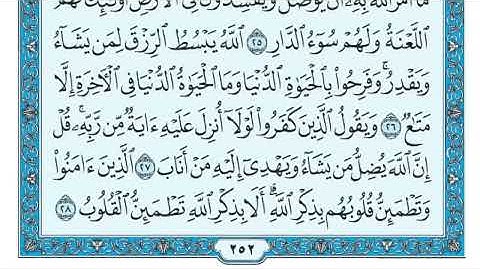 ما أمر الله به أن يوصل ويفسدون في الأرض أولئك لهم
ٱللَّعۡنَةُ وَلَهُمۡ سُوٓءُ ٱلدَّارِ ٢٥ ٱللَّهُ يَبۡسُطُ ٱلرِّزۡقَ لِمَن يَشَآءُ
وَيَقۡدِرُۚ وَفَرِحُواْ بِٱلۡحَيَوٰةِ ٱلدُّنۡيَا وَمَا ٱلۡحَيَوٰةُ ٱلدُّنۡيَا فِي ٱلۡأٓخِرَةِ إِلَّا
مَتَٰعٞ ٢٦ وَيَقُولُ ٱلَّذِينَ كَفَرُواْ لَوۡلَآ أُنزِلَ عَلَيۡهِ ءَايَةٞ مِّن رَّبِّهِۦۚ قُلۡ
إِنَّ ٱللَّهَ يُضِلُّ مَن يَشَآءُ وَيَهۡدِيٓ إِلَيۡهِ مَنۡ أَنَابَ ٢٧ ٱلَّذِينَ ءَامَنُواْ
وَتَطۡمَئِنُّ قُلُوبُهُم بِذِكۡرِ ٱللَّهِۗ أَلَا بِذِكۡرِ ٱللَّهِ تَطۡمَئِنُّ ٱلۡقُلُوبُ ٢٨
٢٥٢